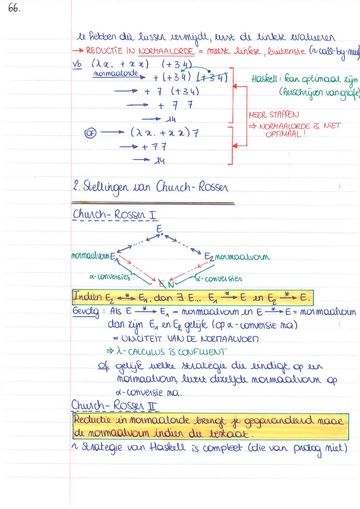 66.
te hebben die lussen vermijdt, eerst de linkse evalueren
→ REDUCTIE IN NORMAALORDE = meest linkse, buitenste (~ call-by-name)
vb (λx. + xx) (+34)
normaalorde → + (+34) (+34)
→ + 7 (+34)
→ + 7 7
→ 14
Haskell: kan optimaal zijn
(herschrijven van grafen)
MEER STAPPEN
⇒ NORMAALORDE IS NIET
OPTIMAAL!
OF → (λx. + xx) 7
→ + 7 7
→ 14
2. Stellingen van Church-Rosser
Church-Rosser I
E
normaalvorm E₁ E₂ normaalvorm
α-conversies E N α-conversies
Indien E₂ *↔ E₁, dan ∃ E... E₁ *→ E en E₂ *→ E.
Gevolg: Als E *→ E₁ - normaalvorm en E *→ E₂ = normaalvorm
dan zijn E₁ en E₂ gelijk (op α-conversie na)
= UNICITEIT VAN DE NORMAALVORM
⇒ λ-CALCULUS IS CONFLUENT
Of gelijk welke strategie die eindigt op een
normaalvorm, levert dezelfde normaalvorm op
α-conversie na.
Church-Rosser II
Reductie in normaalorde brengt je gegarandeerd naar
de normaalvorm indien die bestaat.
~ Strategie van Haskell is compleet (die van prolog niet)